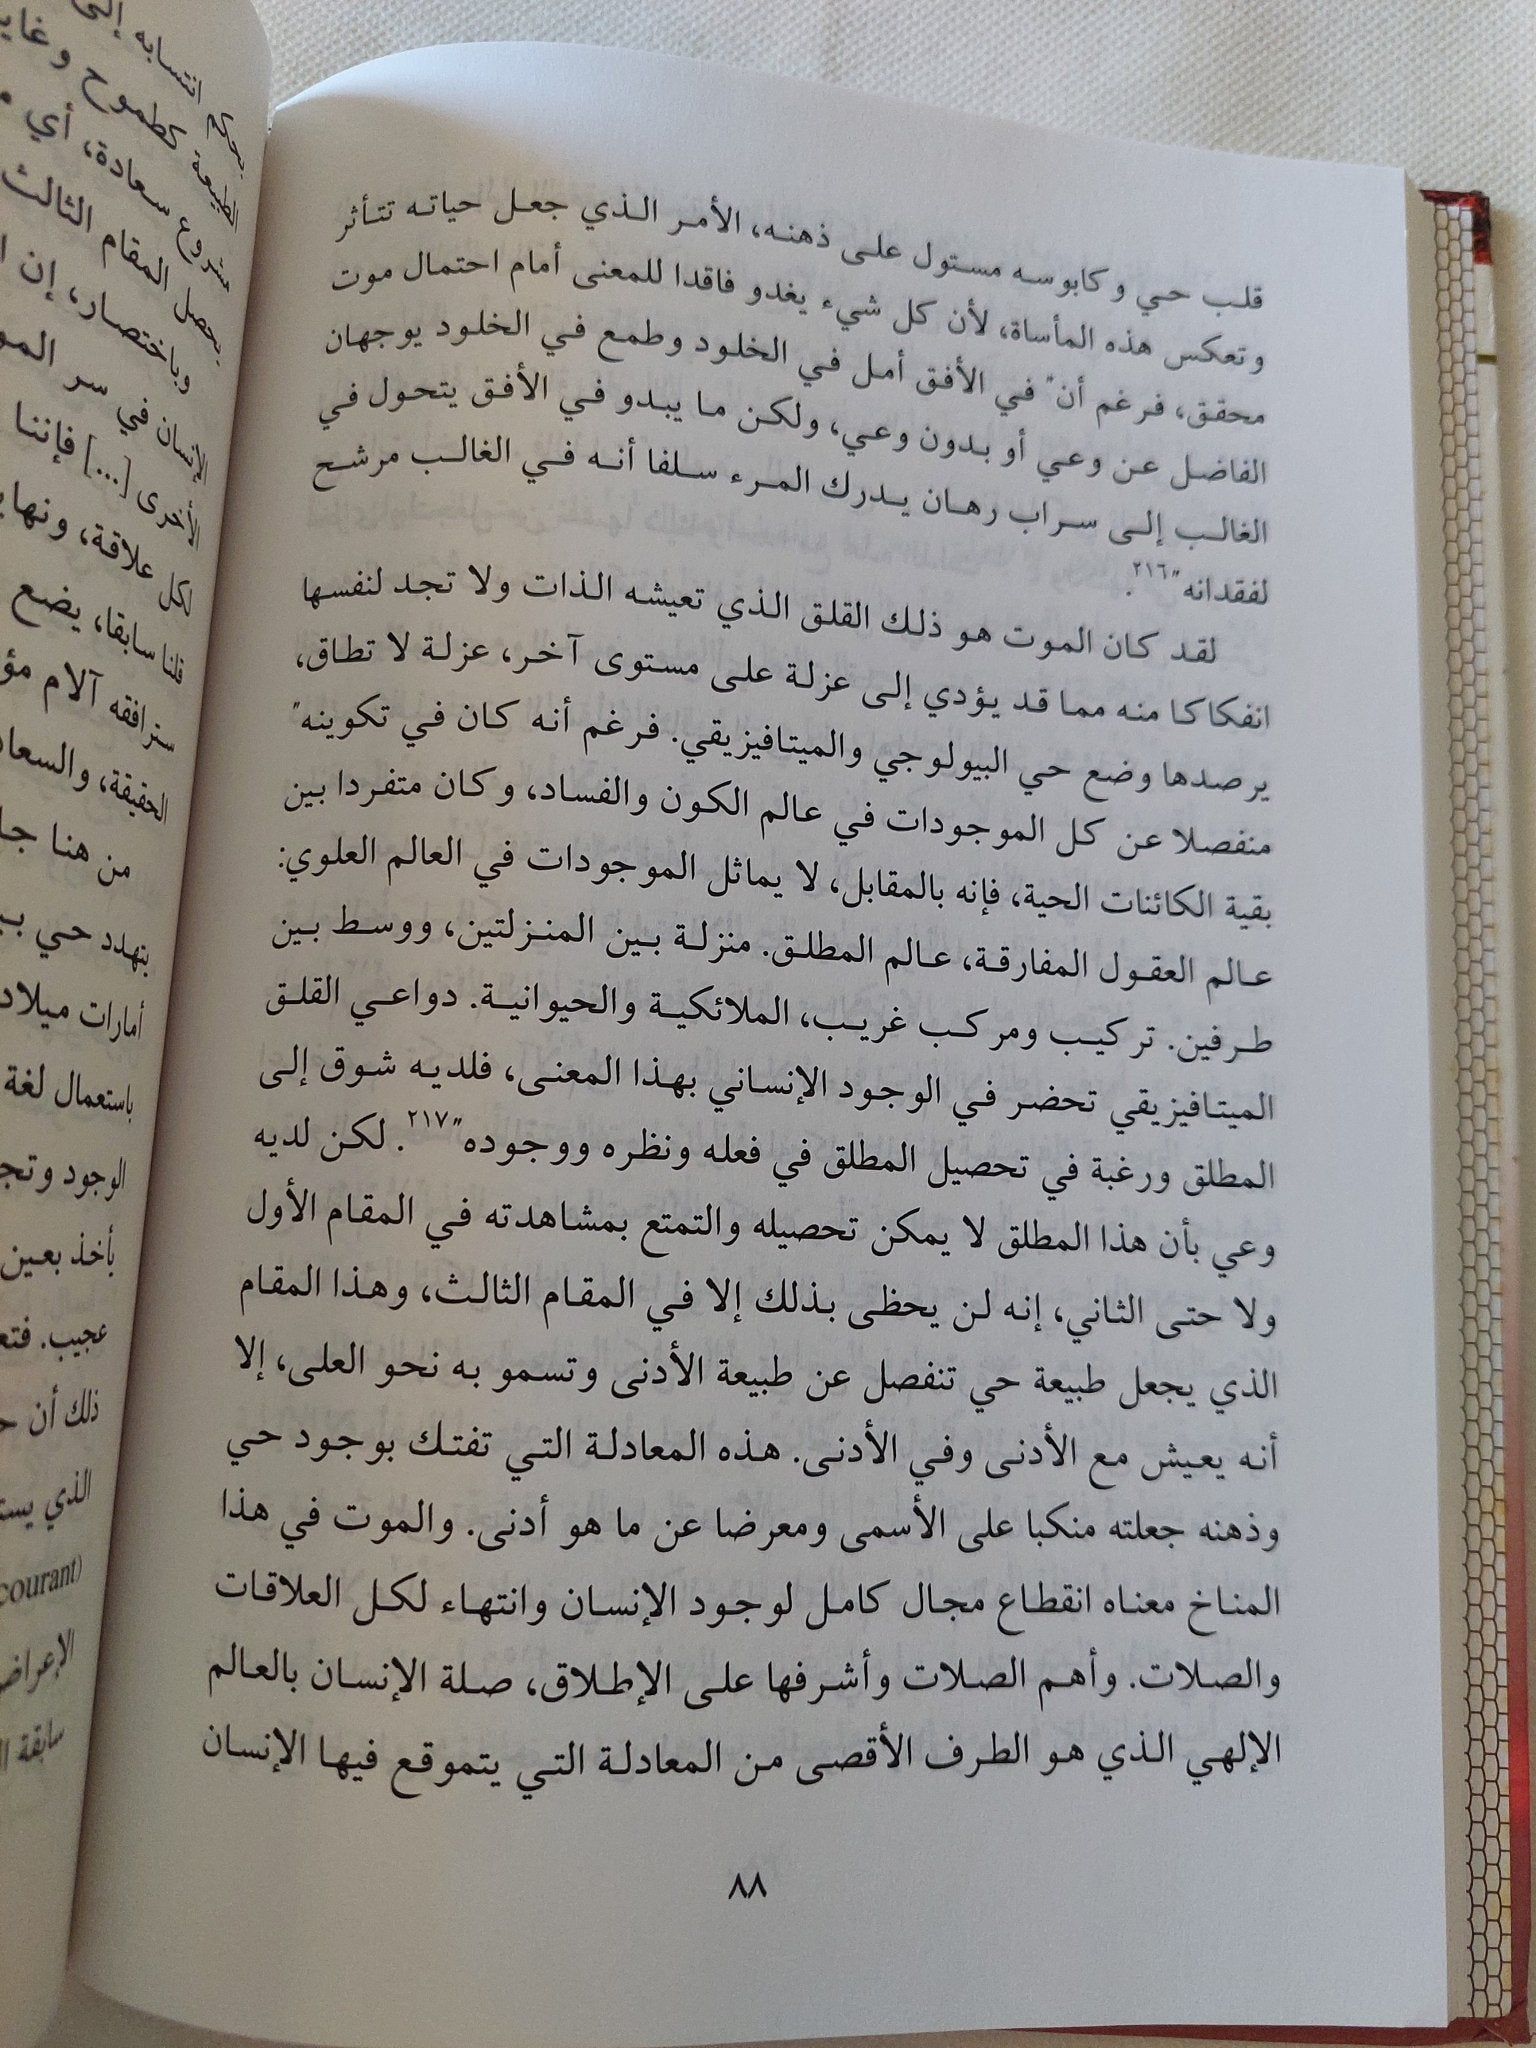 قلب حي وكابوسه مستول على ذهنه، الأمر الذي جعل حياته تتأثر
وتعكس هذه المأساة، لأن كل شيء يغدو فاقدا للمعنى أمام احتمال موت
محقق، فرغم أن" في الأفق أمل في الخلود وطمع في الخلود يوجهان
الفاضل عن وعي أو بدون وعي، ولكن ما يبدو في الأفق يتحول في
الغالب إلى سراب رهان يدرك المرء سلفا أنه في الغالب مرشح
لفقدانه"٢١٦.
لقد كان الموت هو ذلك القلق الذي تعيشه الذات ولا تجد لنفسها
انفكاكا منه مما قد يؤدي إلى عزلة على مستوى آخر، عزلة لا تطاق،
يرصدها وضع حي البيولوجي والميتافيزيقي. فرغم أنه كان في تكوينه"
منفصلا عن كل الموجودات في عالم الكون والفساد، وكان متفردا بين
بقية الكائنات الحية، فإنه بالمقابل، لا يماثل الموجودات في العالم العلوي:
عالم العقول المفارقة، عالم المطلق. منزلة بين المنزلتين، ووسط بين
طرفين. تركيب ومركب غريب، الملائكية والحيوانية. دواعي القلق
الميتافيزيقي تحضر في الوجود الإنساني بهذا المعنى، فلديه شوق إلى
المطلق ورغبة في تحصيل المطلق في فعله ونظره ووجوده"٢١٧. لكن لديه
وعي بأن هذا المطلق لا يمكن تحصيله والتمتع بمشاهدته في المقام الأول
ولا حتى الثاني، إنه لن يحظى بذلك إلا في المقام الثالث، وهذا المقام
الذي يجعل طبيعة حي تنفصل عن طبيعة الأدنى وتسمو به نحو العلى، إلا
أنه يعيش مع الأدنى وفي الأدنى. هذه المعادلة التي تفتك بوجود حي
وذهنه جعلته منكبا على الأسمى ومعرضا عن ما هو أدنى. والموت في هذا
المناخ معناه انقطاع مجال كامل لوجود الإنسان وانتهاء لكل العلاقات
والصلات. وأهم الصلات وأشرفها على الإطلاق، صلة الإنسان بالعالم
الإلهي الذي هو الطرف الأقصى من المعادلة التي يتموقع فيها الإنسان
٨٨
بحكم انتسابه إلى
الطبيعة كطموح وغاية
مشروع سعادة، أي
يحصل المقام الثالث
وباختصار، إن
الإنسان في سر
الأخرى [...] فإننا
لكل علاقة، ونهاية
قلنا سابقا، يضع
سترافقه آلام
الحقيقة، والسعاد
من هنا
يتهدد حي
أمارات ميلاد
باستعمال لغة
الوجود
يأخذ بعين
عجيب.
ذلك أن
الذي
courant)
سابقة